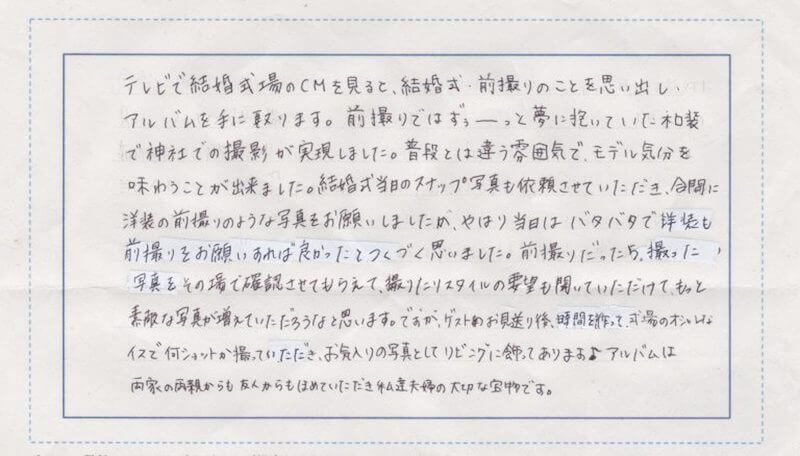 テレビで結婚式場のCMを見ると、結婚式・前撮りのことを思い出し、
アルバムを手に取ります。前撮りではずぅーっと夢に抱いていた和装
で神社での撮影が実現しました。普段とは違う雰囲気で、モデル気分を
味わうことが出来ました。結婚式当日のスナップ写真も依頼させていただき、合間に
洋装の前撮りのような写真をお願いしましたが、やはり当日はバタバタで洋装も
前撮りをお願いすれば良かったとつくづく思いました。前撮りだったら、撮った
写真をその場で確認させてもらえて、撮りたいスタイルの要望も聞いていただけて、もっと
素敵な写真が増えていただろうなと思います。ですが、ゲストのお見送り後、時間を作って、式場のオシャレな
イスで何ショットか撮っていただき、お気入りの写真としてリビングに飾ってあります♪アルバムは
両家の両親からも友人からもほめていただき私達夫婦の大切な宝物です。